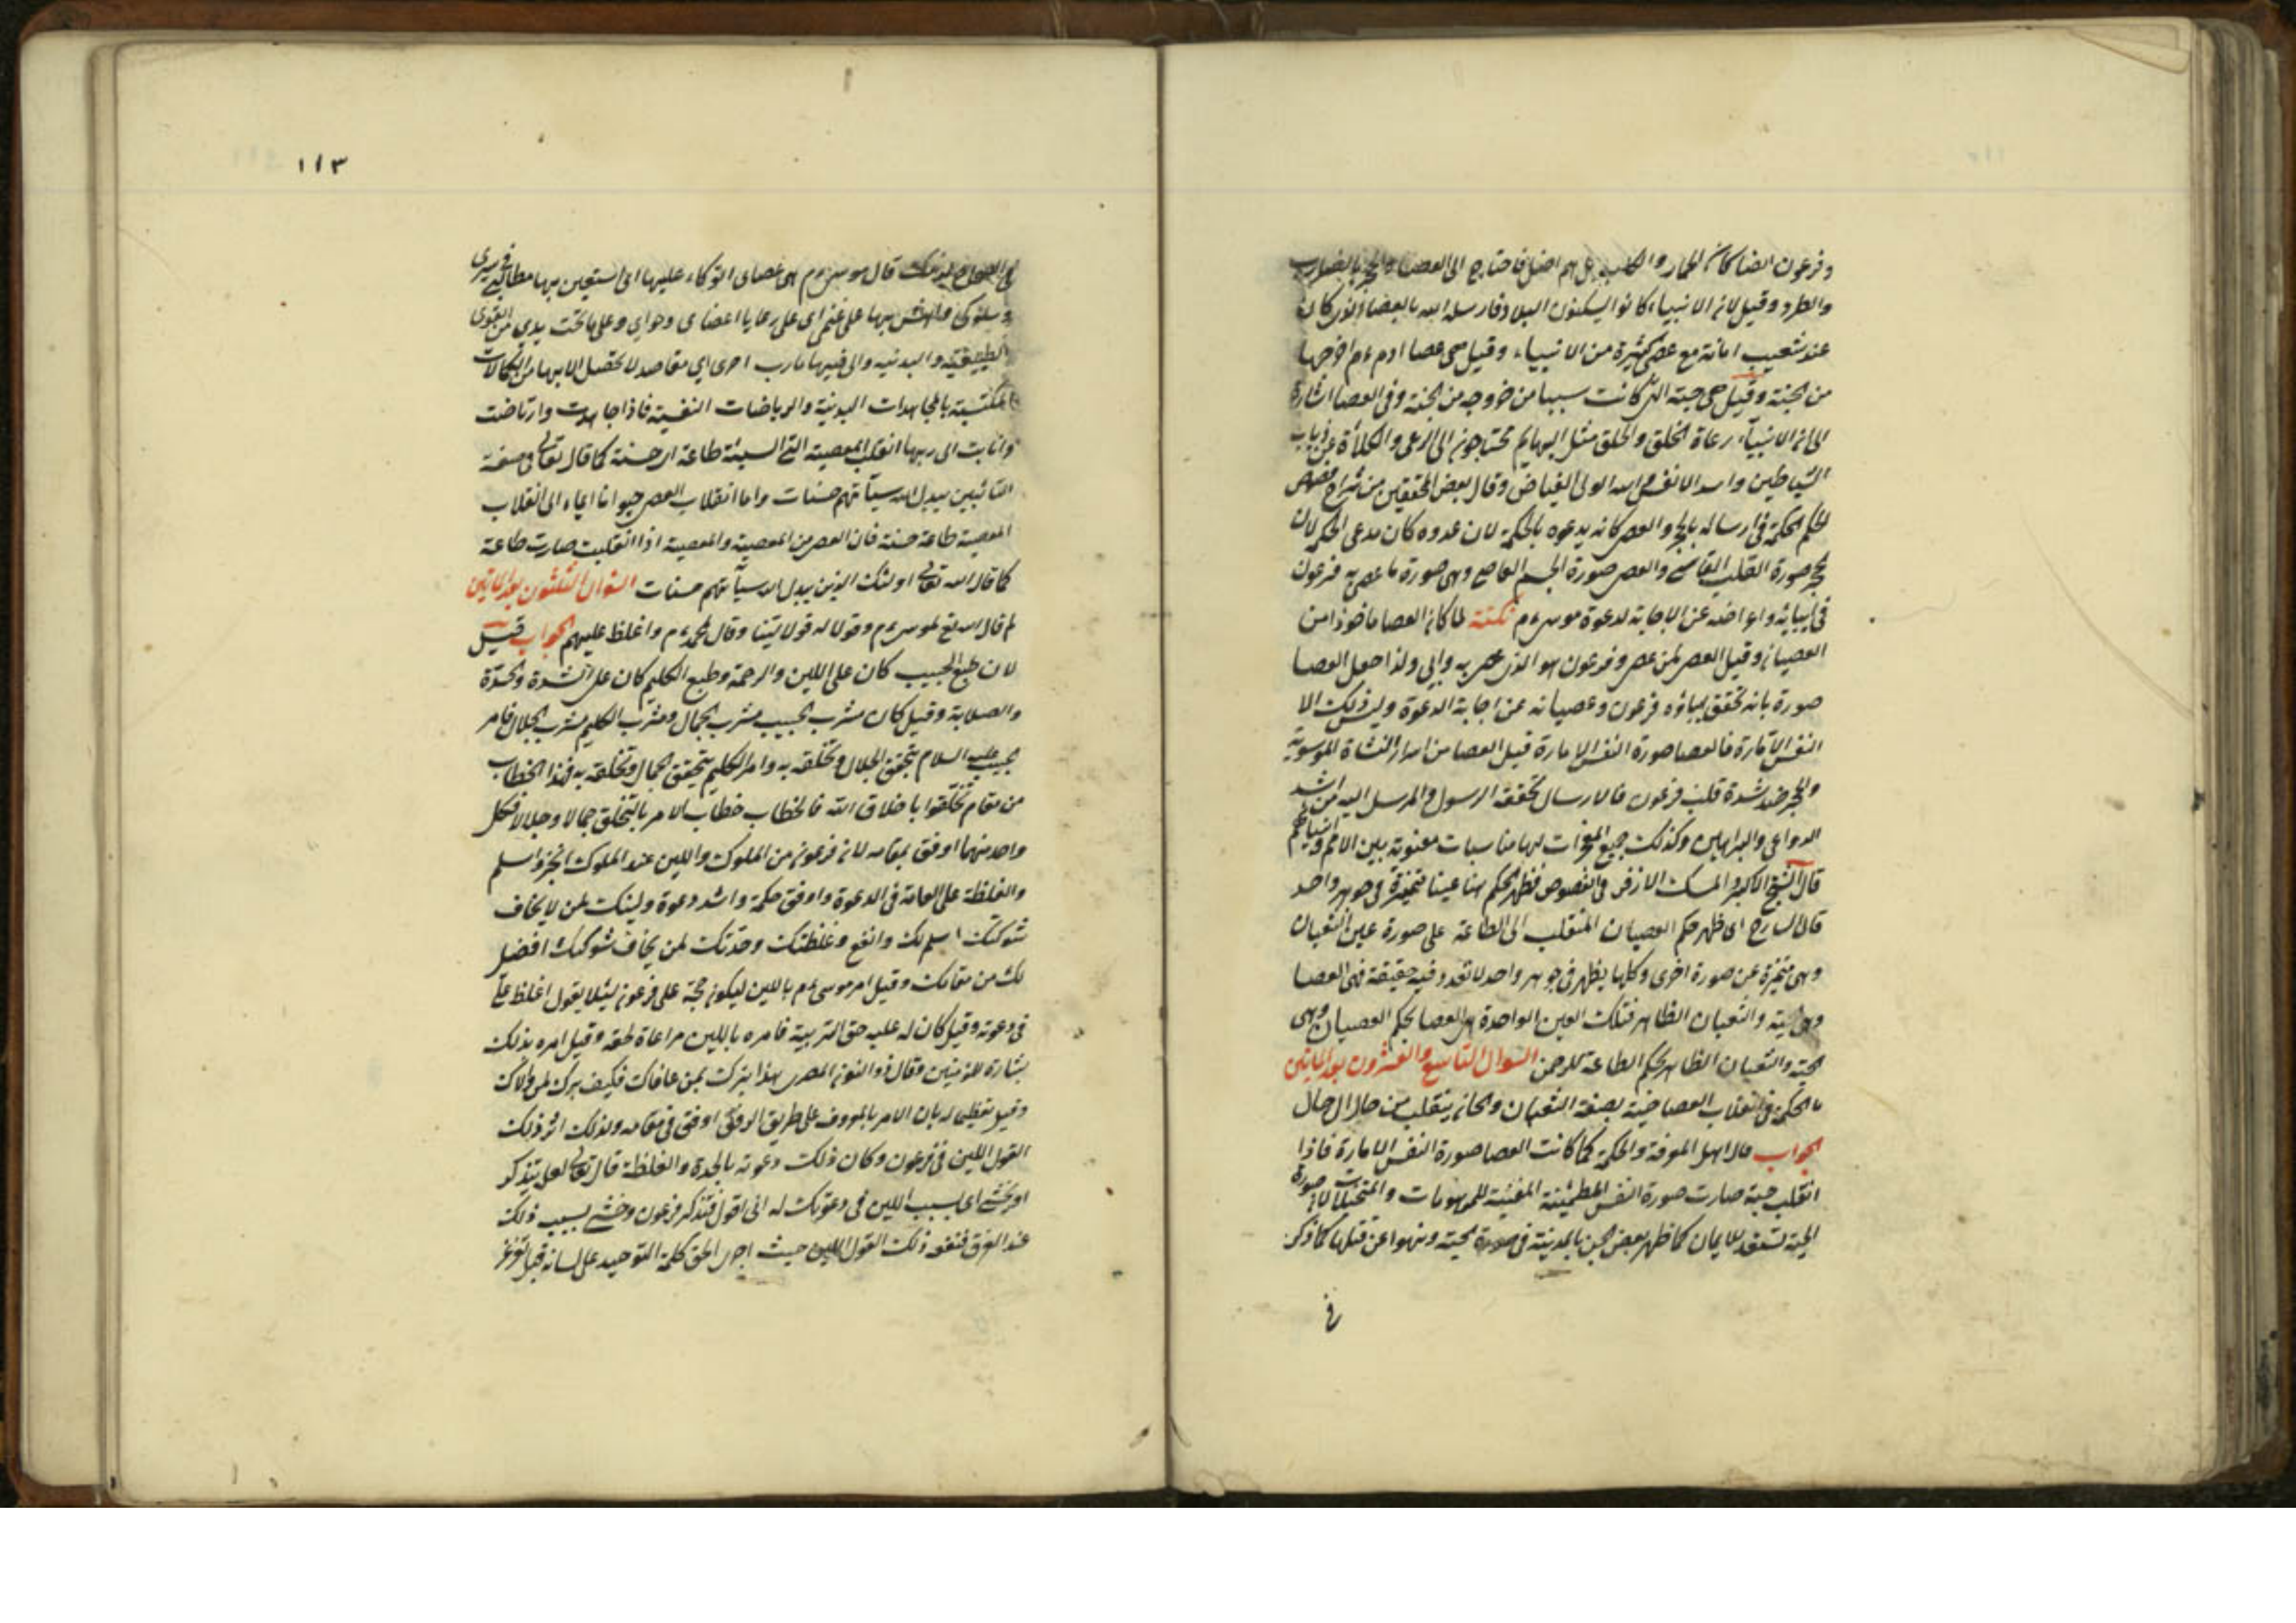 وفرعون ايضا كان كالحمار والكلب بل هم اضل فاحتاج الى العصا والحجر بالضرب
والطرد وقيل لان الانبياء كانوا يسكنون البلاد فارسله الله بالعصا الذى كان
عند شعيب امانة مع عصى كثيرة من الانبياء وقيل هى عصا ادم ءم اخرجها
من الجنة وقيل هى حية التى كانت سببا من خروجه من الجنة وفى العصا اشارة
الى ان الانبياء رعاة الخلق والخلق مثل البهايم محتاجون الى الرعى والكلاءة من ذياب
الشياطين واسد الانفس وقال بعض المحققين من شراح فصوص
الحكم الحكمة فى ارساله بالحجر والعصى كانه يدعوه بالحكمة لان عدوه كان مدعى الحكم لان
الحجر صورة القلب القاسى والعصى صورة الجسم العاصى وهى صورة ما عصى به فرعون
فى ابائه واعراضه عن الاجابة لدعوة موسى ءم نكتة لما كان العصا ماخوذا من
العصيان وقيل العصى لمن عصى وفرعون هو الذى عصى به وابى ولذا جعل العصا
صورة بانه تحقق اباؤه فرعون وعصيانه عن اجابة الدعوة وليس ذلك الا
النفس الامارة فالعصا صورة النفس الامارة قيل العصا من اسرار النشاة الموسوية
والحجر ضد شدة قلب فرعون فالارسال تحققه الرسول والمرسل اليه من اشد
الدواعى والبراهين وكذلك جميع المعجزات لها مناسبات معنوية بين الامم وانبيائهم
قال الشيخ الاكبر والمسك الازفر فى الفصوص فظهر الحكم هنا عينا متميزة فى جوهر واحد
قال الشارح اى ظهر حكم العصيان المنقلب الى الطاعة على صورة عين الثعبان
وهى متميزة عن صورة اخرى وكلها يظهر فى جوهر واحد لا تعدد فيه حقيقة فهى العصا
وهى الحية والثعبان الظاهر فتلك العين الواحدة هى العصا بحكم العصيان وهى
الحية والثعبان الظاهر بحكم الطاعة للرحمن السوال التاسع والعشرون بعد المايتين
ما الحكمة فى انقلاب العصا حية بصفة الثعبان والجان ينقلب من حال الى حال
الجواب قال اهل المعرفة والحكمة كما كانت العصا صورة النفس الامارة فاذا
انقلب حية صارت صورة النفس المطمئنة المفنية للموهومات والمتخيلات لان صورة
الحية تستعد للايمان كما ظهر بعض الجن بالمدينة فى صورة الحية ونهوا عن قتلها كما ذكر
فى
١١٣
قال موسى ءم هى عصاى اتوكاء عليها اى استعين بها مطالبى فى سيرى
وسلوكى واهش بها على غنمى اى على رعايا اعضاى وحواى وعلى ما تحت يدى من القوى
الطبيعية والبدنيه ولى فيها مارب اخرى اى مقاصد لا تحصل الا بها من الكمالات
المكتسبة بالمجاهدات البدنية والرياضات النفسية فاذا جاهدت وارتاضت
وانابت الى ربها انقلب المعصية التى السيئة طاعة اى حسنة كما قال تعالى فى صفة
التائبين يبدل الله سيآتهم حسنات واما انقلاب العصى حيوانا ايماء الى انقلاب
المعصية طاعة حسنة فان العصى من المعصية والمعصية اذا انقلبت صارت طاعة
كما قال الله تعالى اولئك الذين يبدل الله سيآتهم حسنات السوال الثلثون بعد المايتين
لم قال الله تع لموسى ءم وقولا له قولا لينا وقال لمحمد ءم واغلظ عليهم الجواب قيل
لان طبع الحبيب كان على اللين والرحمة وطبع الكليم كان على الشدة والحدة
والصلابة وقيل كان مشرب الحبيب مشرب الجمال ومشرب الكليم مشرب الجلال فامر
حبيب عليه السلام بتحقق الجلال وتخلقه به وامر الكليم بتحقق الجمال وتخلقه به فهذا الخطاب
من مقام تخلقوا باخلاق الله فالخطاب خطاب الامر بالتخلق جمالا وجلالا فكل
واحد منهما اوفق بمقامه لان فرعون من الملوك واللين عند الملوك انجز واسلم
والغلظة على العامة فى الدعوة واوفق حكمة واشد دعوة ولينك لمن لا يخاف
شوكتك اسلم لك وانفع وغلظتك وحدتك لمن يخاف شوكتك افضل
لك من مقامك وقيل امر موسى ءم باللين ليكون حجة على فرعون لئلا يقول اغلظ على
فى دعوته وقيل كان له عليه حق التربية فامره باللين مراعاة لحقه وقيل امره بذلك
بشارة للمؤمنين وقال ذو النون المصرى هذا برك بمن عاداك فكيف برك لمن والاك
وقيل تعظيما له بان الامر بالمعروف على طريق الرفق اوفق فى مقامه ولذلك اثر ذلك
القول اللين فى فرعون وكان ذلك دعوته بالحدة والغلظة قال تعالى لعله يتذكر
او يخشى اى بسبب اللين فى دعوتك له انى اقول فتذكر فرعون وخشى بسبب ذلك
عند الغرق فنفعه ذلك القول اللين حيث اجرى الحق كلمة التوحيد على لسانه قبل تغرغر